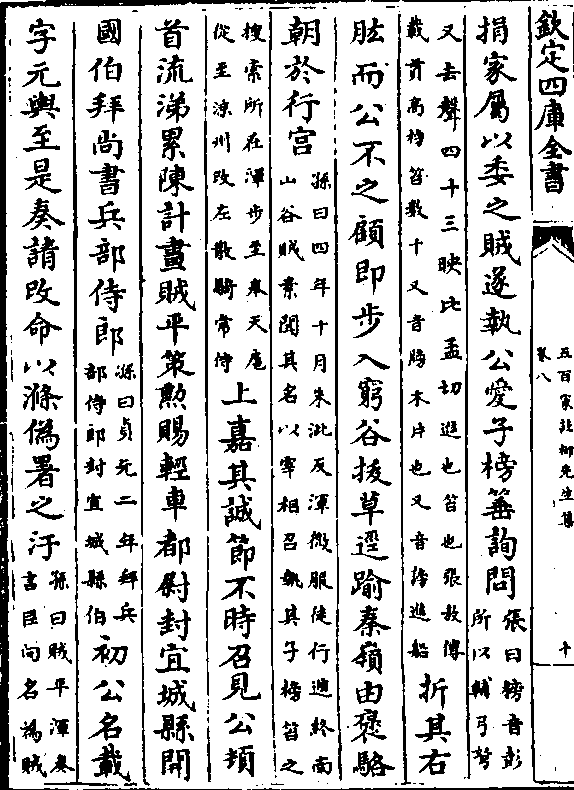 欽定四庫全書
五百家註柳先生集
卷八
十
捐家屬以委之賊遂執公愛子榜箠詢問
張曰榜音彭
所以輔弓弩
又去聲四十三映比孟切進也笞也張敖傳
載貫高榜笞數十又音牓木片也又音謗進船
折其右
肱而公不之顧即步入窮谷拔草逕踰秦嶺由褒駱
朝於行宫
孫曰四年十月朱泚反渾微服徒行遁終南
山谷賊素聞其名以宰相召執其子榜笞之
搜索所在渾步至奉天扈
從至涼州改左散騎常侍
上嘉其誠節不時召見公頓
首流涕累陳計畫賊平策勲賜輕車都尉封宜城縣開
國伯拜尚書兵部侍郎
孫曰貞元二年拜兵
部侍郎封宜城縣伯
初公名載
字元輿至是奏請改命以滌偽署之汙
孫曰賊平渾奏
言臣向名為賊